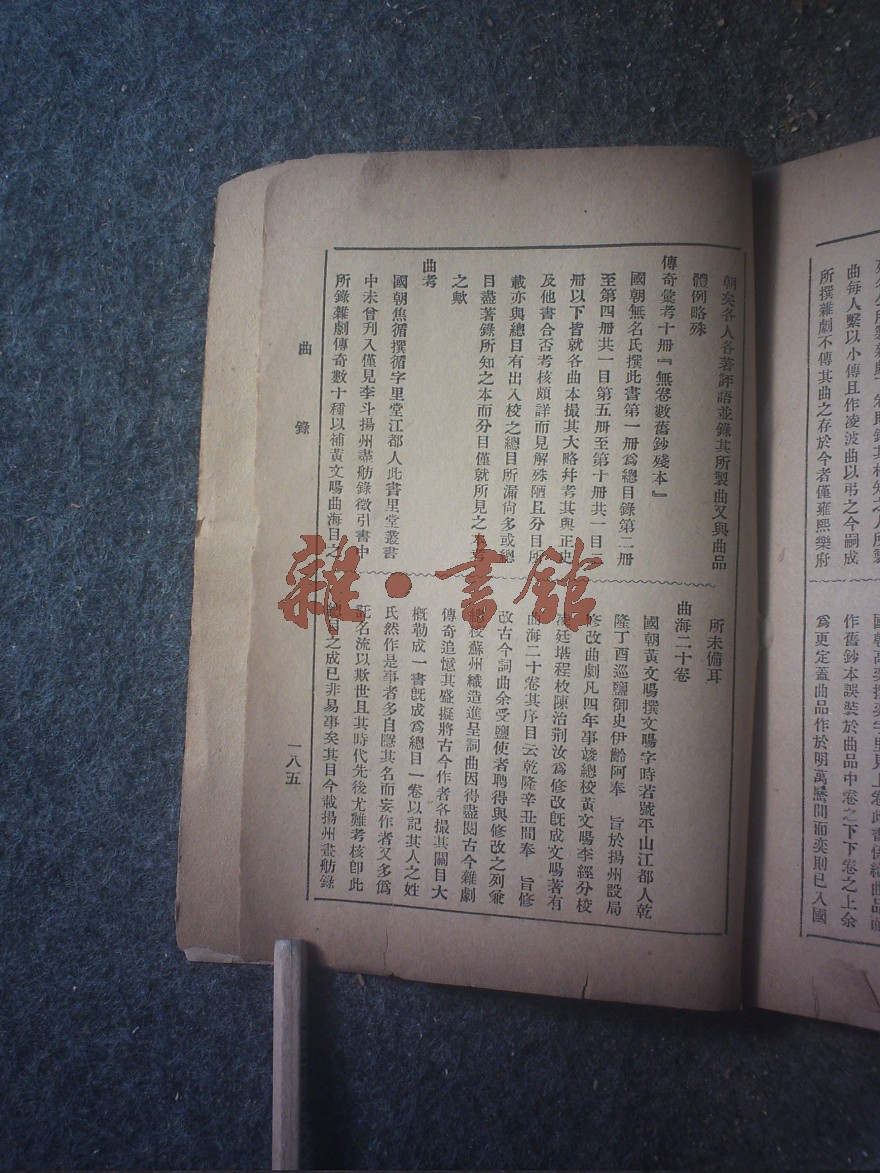 所撰雜劇不傳其曲之存於今者僅雍熙樂府
曲每人繫以小傳且作凌波曲以弔之今嗣成
作舊鈔本誤裝於曲品中卷之下下卷之上余
爲更定蓋曲品作於明萬曆間而奕則已入國
朝矣各人各著評語並錄其所製曲又與曲品
體例略殊
傳奇彙考十册『無卷數舊鈔殘本』
國朝無名氏撰此書第一册爲總目錄第二册
至第四册共一目第五册至第十册共一目二
册以下皆就各曲本撮其大略幷考其與正史
及他書合否考核頗詳而見解殊陋且分目所
載亦與總目有出入校之總目所漏尙多或總
目盡著錄所知之本而分目僅就所見之本
之歟
曲考
國朝焦循撰循字里堂江都人此書里堂叢書
中未曾刋入僅見李斗揚州畫舫錄徵引書中
所錄雜劇傳奇數十種以補黃文暘曲海目之
所未備耳
曲海二十卷
國朝黃文暘撰文暘字時若號平山江都人乾
隆丁酉巡鹽御史伊齡阿奉 旨於揚州設局
修改曲劇凡四年事竣總校黃文暘李經分校
凌廷堪程枚陳治荆汝爲修改旣成文暘著有
曲海二十卷其序目云乾隆辛丑間奉 旨修
改古今詞曲余受鹽使者聘得與修改之列兼
總校蘇州織造進呈詞曲因得盡閱古今雜劇
傳奇追憶其盛擬將古今作者各撮其關目大
概勒成一書旣成爲總目一卷以記其人之姓
氏然作是事者多自隱其名而妄作者又多僞
託名流以欺世且其時代先後尤難考核卽此
總目之成已非易事矣其目今載揚州畫舫錄
曲 錄
一八五
雜·書館